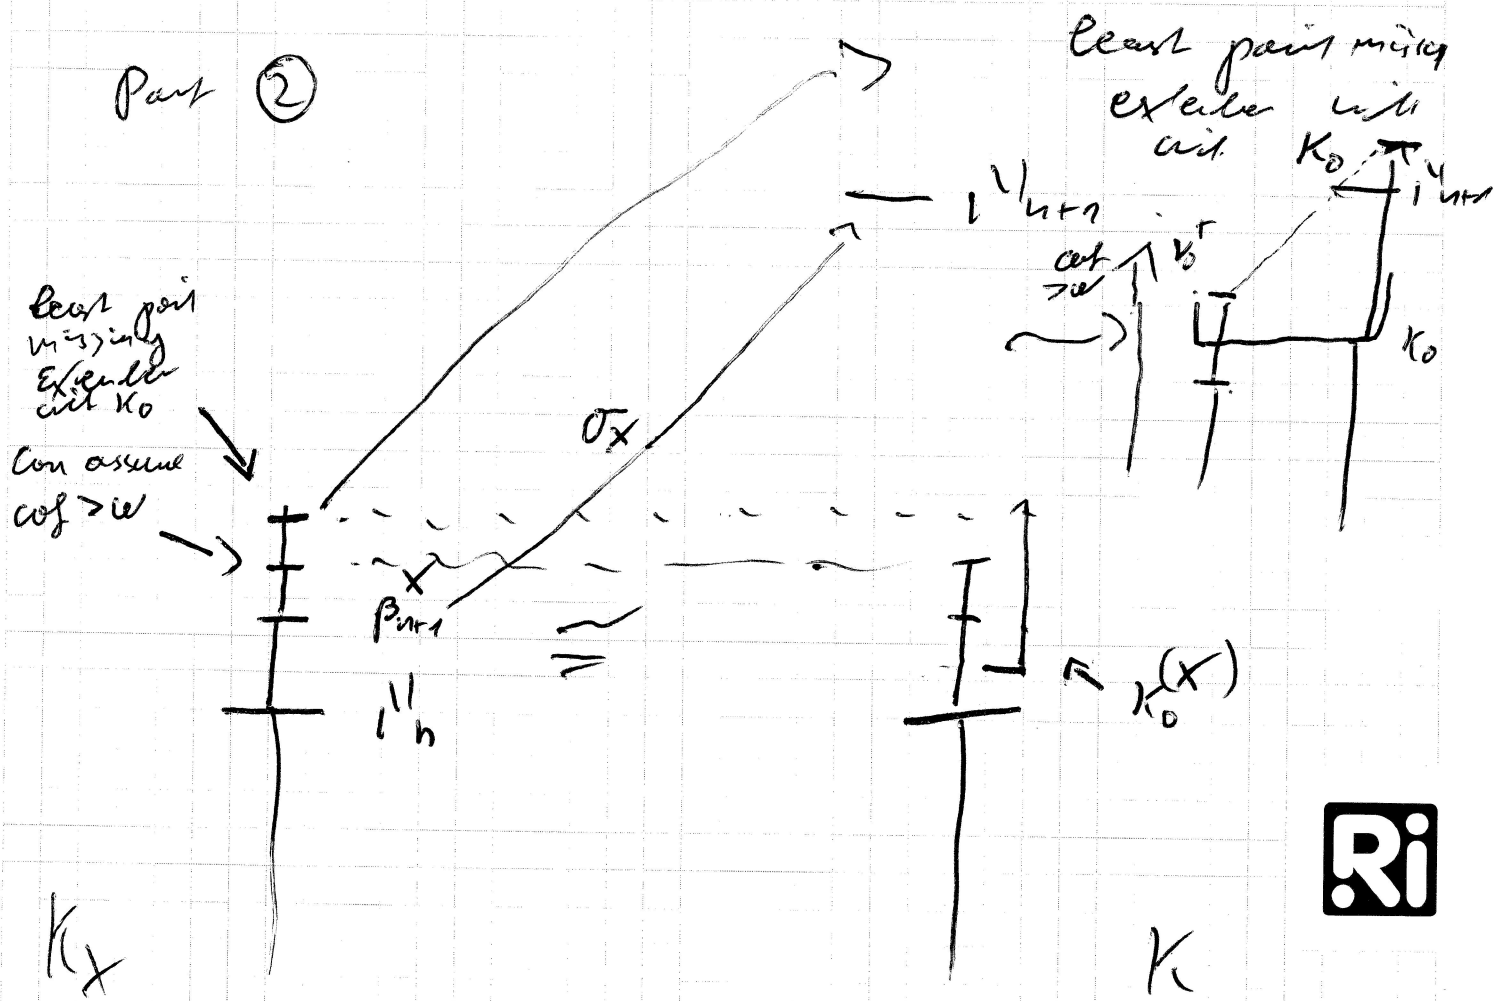 Part ②
least point missing
extender with
crit κ₀
ν_{n+1}
ν_{n+1}
cof
>ω
ν₀⁺
κ₀
least point
missing
Extender
crit κ₀
Can assume
cof >ω
σ_X
β^X_{n+1}
≅
ν_n
κ₀^{(X)}
K_X
K
Ri